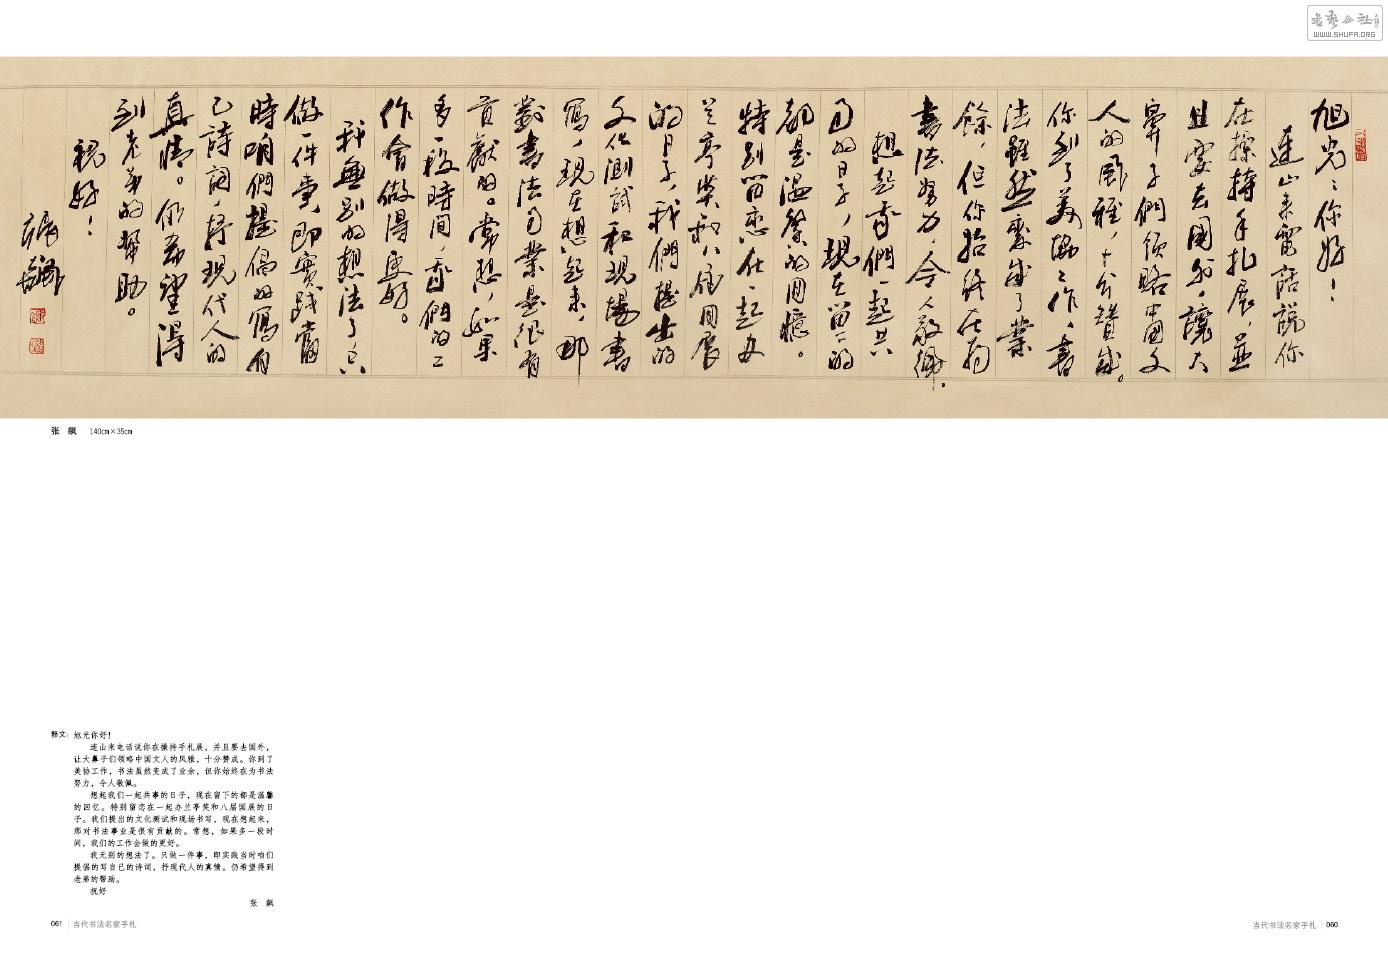 書藝公社
WWW.SHUFA.ORG
旭光:你好!
連山来電話說你
在操持手札展,並
且要去國外,讓大
鼻子們領略中國文
人的風雅,十分贊成。
你到了美協工作,書
法雖然變成了業
餘,但你始終在為
書法努力,令人敬佩。
想起我們一起共
事的日子,現在留下的
都是温馨的回憶。
特别留恋在一起办
兰亭奖和八届国展
的日子,我們提出的
文化測試和現場書
寫,現在想起来,那
對書法事業是很有
貢献的。常想,如果
多一段時間,我們的工
作會做得更好。
我無别的想法了,只
做一件事,即實踐當
時咱們提倡的寫自
己詩詞,抒現代人的
真情。仍希望得
到老弟的幫助。
祝好!
張飆
张 飙 140cm×35cm
释文:旭光你好!
连山来电话说你在操持手札展,并且要去国外,
让大鼻子们领略中国文人的风雅,十分赞成。你到了
美协工作,书法虽然变成了业余,但你始终在为书法
努力,令人敬佩。
想起我们一起共事的日子,现在留下的都是温馨
的回忆。特别留恋在一起办兰亭奖和八届国展的日
子。我们提出的文化测试和现场书写,现在想起来,
那对书法事业是很有贡献的。常想,如果多一段时
间,我们的工作会做的更好。
我无别的想法了。只做一件事,即实践当时咱们
提倡的写自己的诗词,抒现代人的真情。仍希望得到
老弟的帮助。
祝好
张 飙
061 当代书法名家手札
当代书法名家手札 060